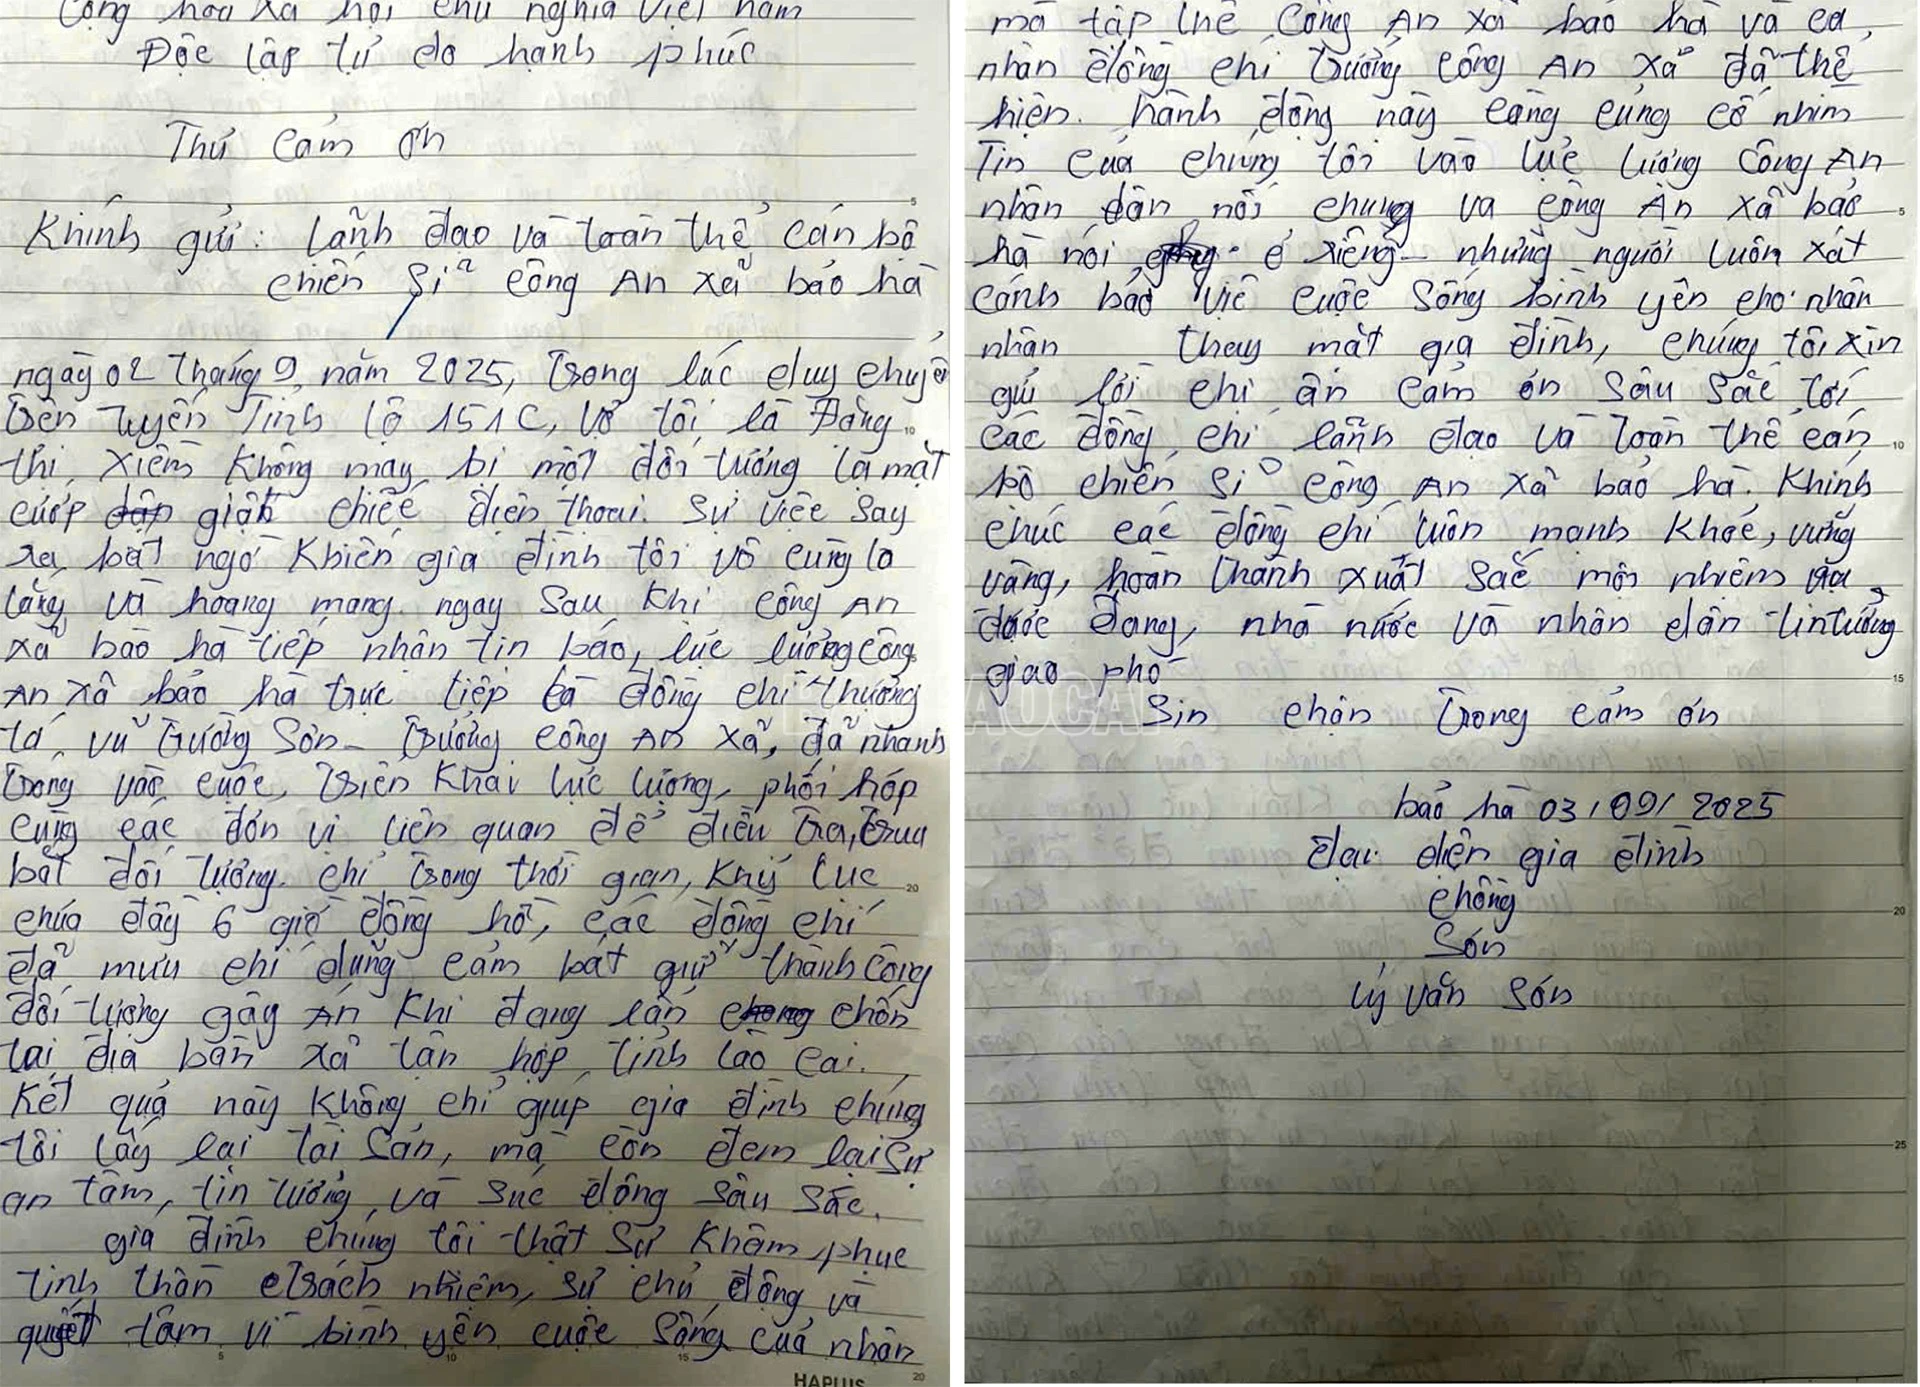 Cộng hoà xã hội chủ nghĩa Việt nam
Độc lập tự do hạnh phúc
Thư cảm ơn
Khính gửi: lãnh đạo và toàn thể cán bộ
chiến sĩ công An xã bảo hà
ngày 02 tháng 9 năm 2025, trong lúc duy chuyển
trên tuyến Tỉnh lộ 151C, vợ tôi là Đặng
thị xiêm không may bị một đối tượng lạ mặt
cướp dập giật chiếc điện thoại. sự việc say
ra bất ngờ khiến gia đình tôi vô cùng lo
lắng và hoang mang. ngay sau khi công An
xã bảo hà tiếp nhận tin báo, lực lượng công
An xã bảo hà trực tiếp là đồng chí thượng
tá vũ trường sơn - trưởng công An xã, đã nhanh
tróng vào cuộc, triển khai lực lượng, phối hợp
cùng các đơn vị liên quan để điều tra, truy
bắt đối tượng. chỉ trong thời gian, khỷ lục
chưa đầy 6 giờ đồng hồ, các đồng chí
đã mưu chí dũng cảm bắt giữ thành công
đối tượng gây án khi đang lẩn chong chốn
tại địa bàn xã tân hợp, tỉnh lào cai.
Kết quả này không chỉ giúp gia đình chúng
tôi lấy lại tài sản, mà còn đem lại sự
an tâm, tin tưởng, và súc động sâu sắc.
gia đình chúng tôi thật sự khâm phục
tinh thần trách nhiệm, sự chủ động và
quyết tâm vì bình yên cuộc sống của nhân
HAPLUS
mà tập thể công An xã bảo hà và cá
nhân đồng chí trưởng công An xã đã thể
hiện. hành động này càng củng cố nhìm
Tin của chúng tôi vào lực lượng công An
nhân dân nói chung và công An xã bảo
hà nói ở riêng - những người luôn xát
cánh bảo việ cuộc sống bình yên cho nhân
nhân thay mặt gia đình, chúng tôi xin
gửi lời chi ân cảm ơn sâu sắc tới
các đồng chí lãnh đạo và toàn thể cán
bộ chiến sĩ công An xã bảo hà. Khính
chúc các đồng chí luôn mạnh khoẻ, vững
vàng, hoàn thành xuất sắc mọi nhiệm vụ
được Đảng, nhà nước và nhân dân tin tưởng
giao phó
Sin chân trọng cảm ơn
bảo hà 03/09/2025
Đại diện gia đình
chồng
Sơn
Lý văn Sơn